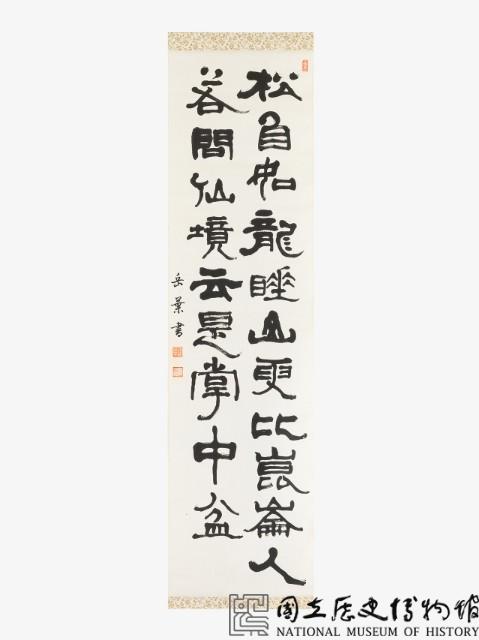 松自如龍睡山更比崑崙人
若問仙境云是掌中盆
岳葉書
國立歷史博物館
NATIONAL MUSEUM OF HISTORY